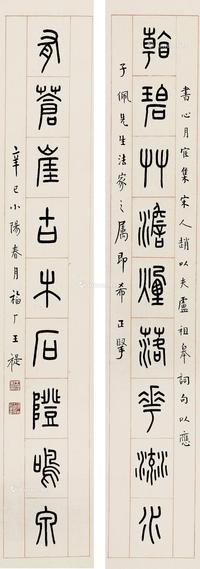 書心月宦集宋人趙以夫盧祖皋詞句以應
碧艸澹煙落花流水
子佩先生法家之属即希 正
有蒼崖古木石磴鳴泉
辛巳小陽春月福厂王禔